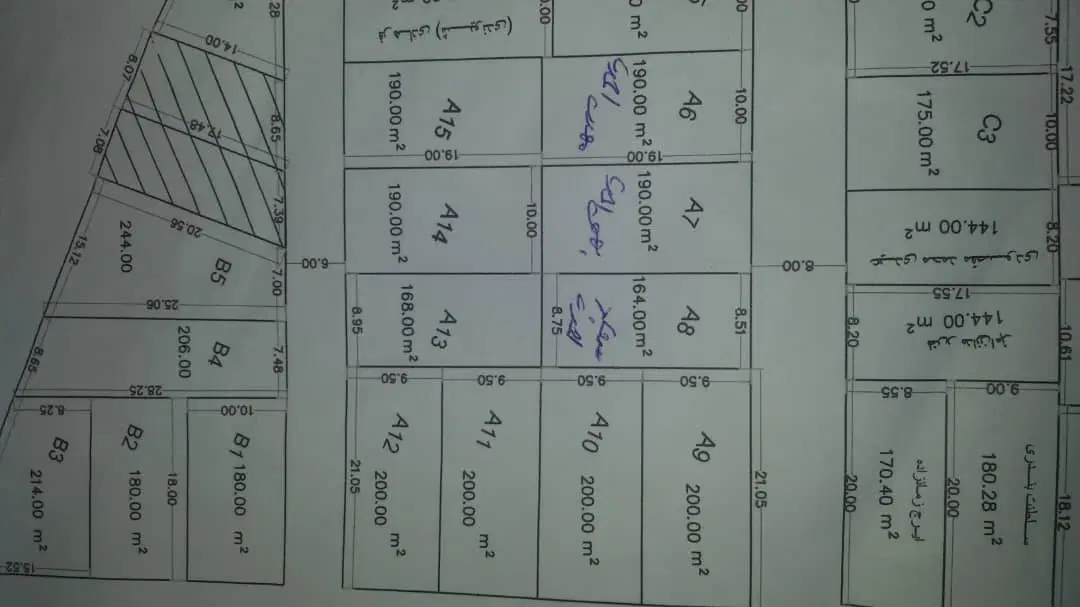 28
m²
14.00
8.07
8.65
12.48
7.08
7.39
20.56
7.00
15.12
244.00
B5
25.06
206.00
B4
7.48
8.65
28.25
8.25
B3
214.00 m²
15.52
B2
180.00 m²
18.00
10.00
B1
180.00 m²
6.00
A15
190.00 m²
19.00
A14
190.00 m²
10.00
A13
168.00 m²
8.95
9.50
A12
200.00 m²
21.05
9.50
A11
200.00 m²
A6
190.00 m²
10.00
19.00
A7
190.00 m²
A8
164.00 m²
8.75
8.51
9.50
A10
200.00 m²
9.50
A9
200.00 m²
21.05
8.00
C2
0 m²
7.55
17.52
17.22
C3
175.00 m²
10.00
144.00 m²
8.20
17.55
144.00 m²
8.20
10.61
8.55
9.00
ایرج زمانزاده
170.40 m²
20.00
20.00
180.28 m²
18.12